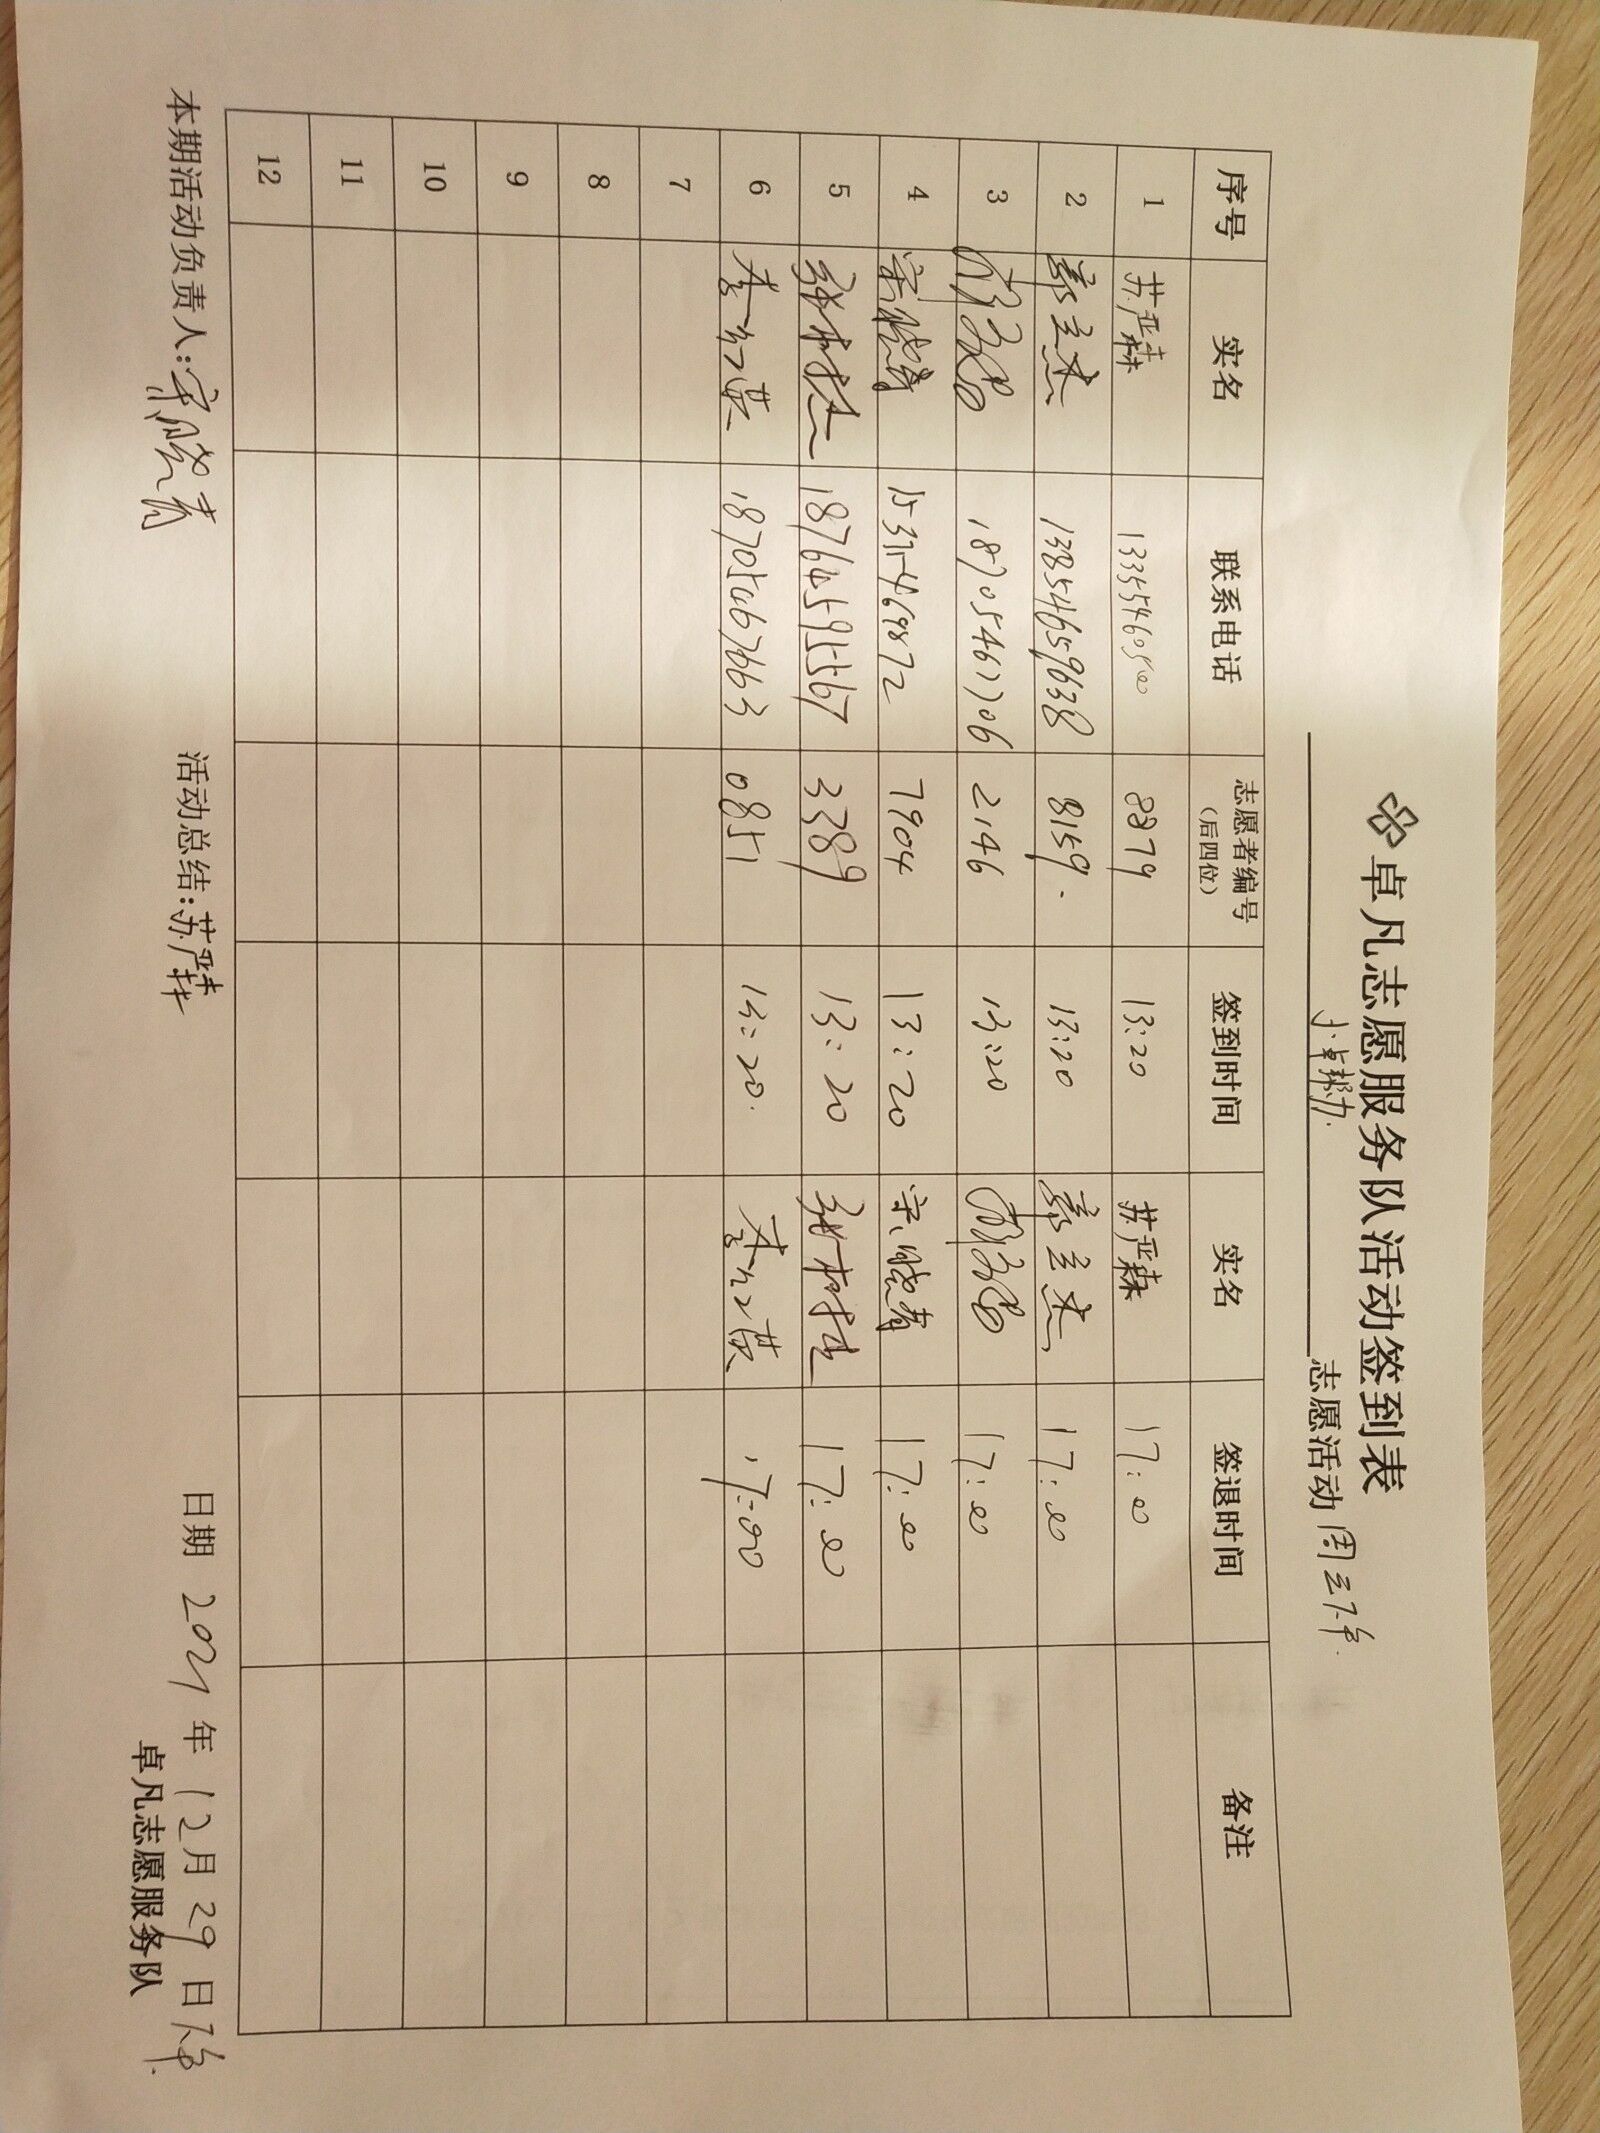 卓凡志愿服务队活动签到表
小卓帮办 志愿活动 周三下午
序号 实名 联系电话 志愿者编号（后四位） 签到时间 实名 签退时间 备注
1 苏严森 13355460500 8879 13:20 苏严森 17:00
2 綦立杰 13854659638 8159 13:20 綦立杰 17:00
3 18705461706 2146 13:20 17:00
4 宋晓青 15375469872 7904 13:20 宋晓青 17:00
5 18764595567 3389 13:20 17:00
6 李红英 18705467663 0851 13:20 李红英 17:00
7
8
9
10
11
12
本期活动负责人：宋晓青 活动总结：苏严森 日期 2021 年 12 月 29 日下午
卓凡志愿服务队